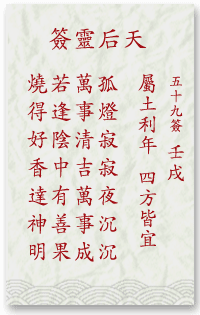 天后靈簽
五十九簽 壬戌
屬土利年 四方皆宜
孤燈寂寂夜沉沉
萬事清吉萬事成
若逢陰中有善果
燒得好香達神明